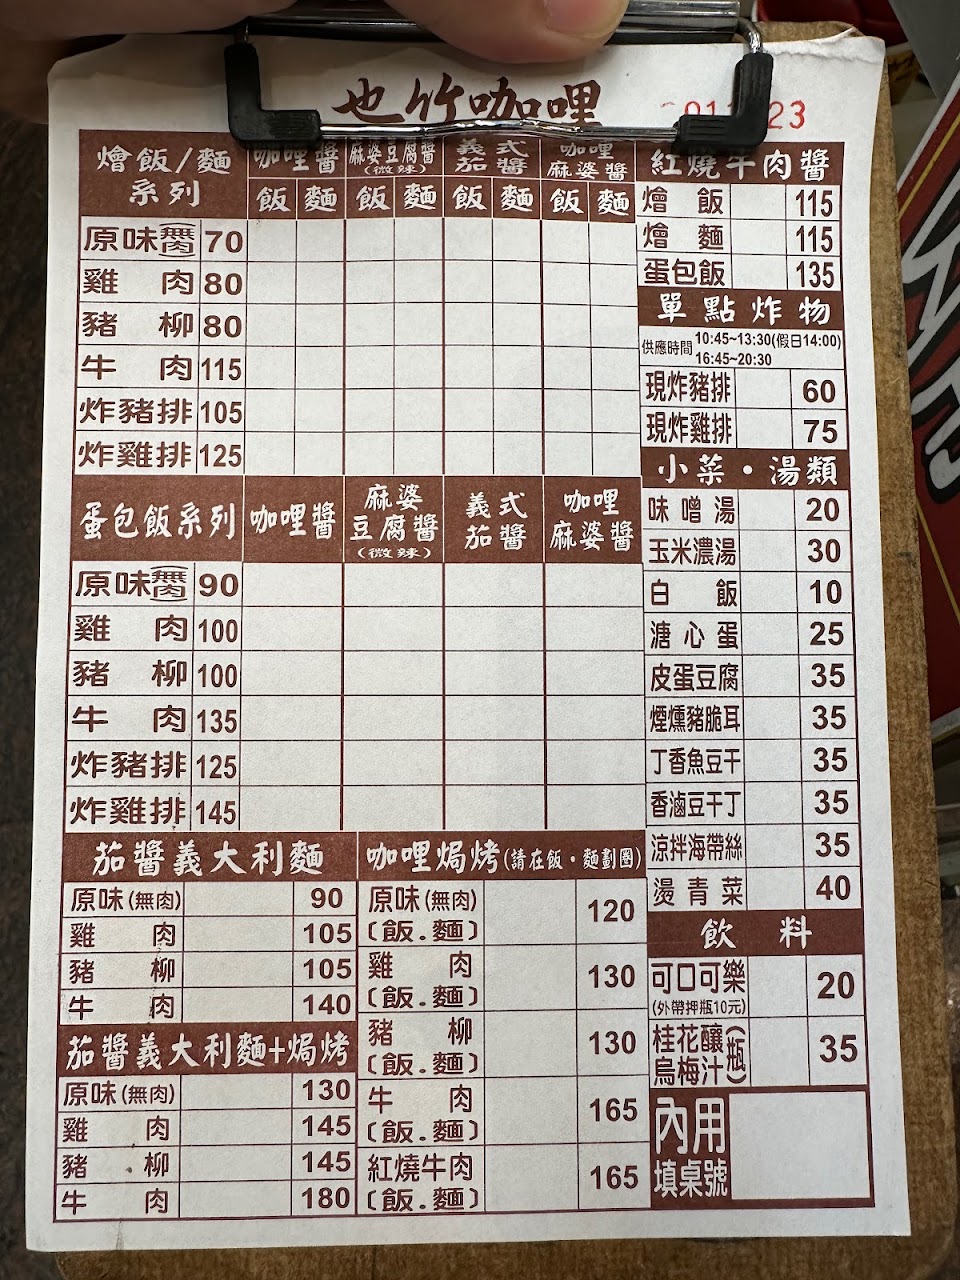 也竹咖哩
燴飯/麵系列 咖哩醬 麻婆豆腐醬(微辣) 義式茄醬 咖哩麻婆醬
飯 麵 飯 麵 飯 麵 飯 麵
原味(無肉) 70
雞肉 80
豬柳 80
牛肉 115
炸豬排 105
炸雞排 125
蛋包飯系列 咖哩醬 麻婆豆腐醬(微辣) 義式茄醬 咖哩麻婆醬
原味(無肉) 90
雞肉 100
豬柳 100
牛肉 135
炸豬排 125
炸雞排 145
茄醬義大利麵
原味(無肉) 90
雞肉 105
豬柳 105
牛肉 140
茄醬義大利麵+焗烤
原味(無肉) 130
雞肉 145
豬柳 145
牛肉 180
咖哩焗烤(請在飯·麵劃圈)
原味(無肉)(飯.麵) 120
雞肉(飯.麵) 130
豬柳(飯.麵) 130
牛肉(飯.麵) 165
紅燒牛肉(飯.麵) 165
紅燒牛肉醬
燴飯 115
燴麵 115
蛋包飯 135
單點炸物
供應時間 10:45~13:30(假日14:00)
16:45~20:30
現炸豬排 60
現炸雞排 75
小菜·湯類
味噌湯 20
玉米濃湯 30
白飯 10
溏心蛋 25
皮蛋豆腐 35
煙燻豬脆耳 35
丁香魚豆干 35
香滷豆干丁 35
涼拌海帶絲 35
燙青菜 40
飲料
可口可樂 20
(外帶押瓶10元)
桂花釀烏梅汁(瓶) 35
內用
填桌號